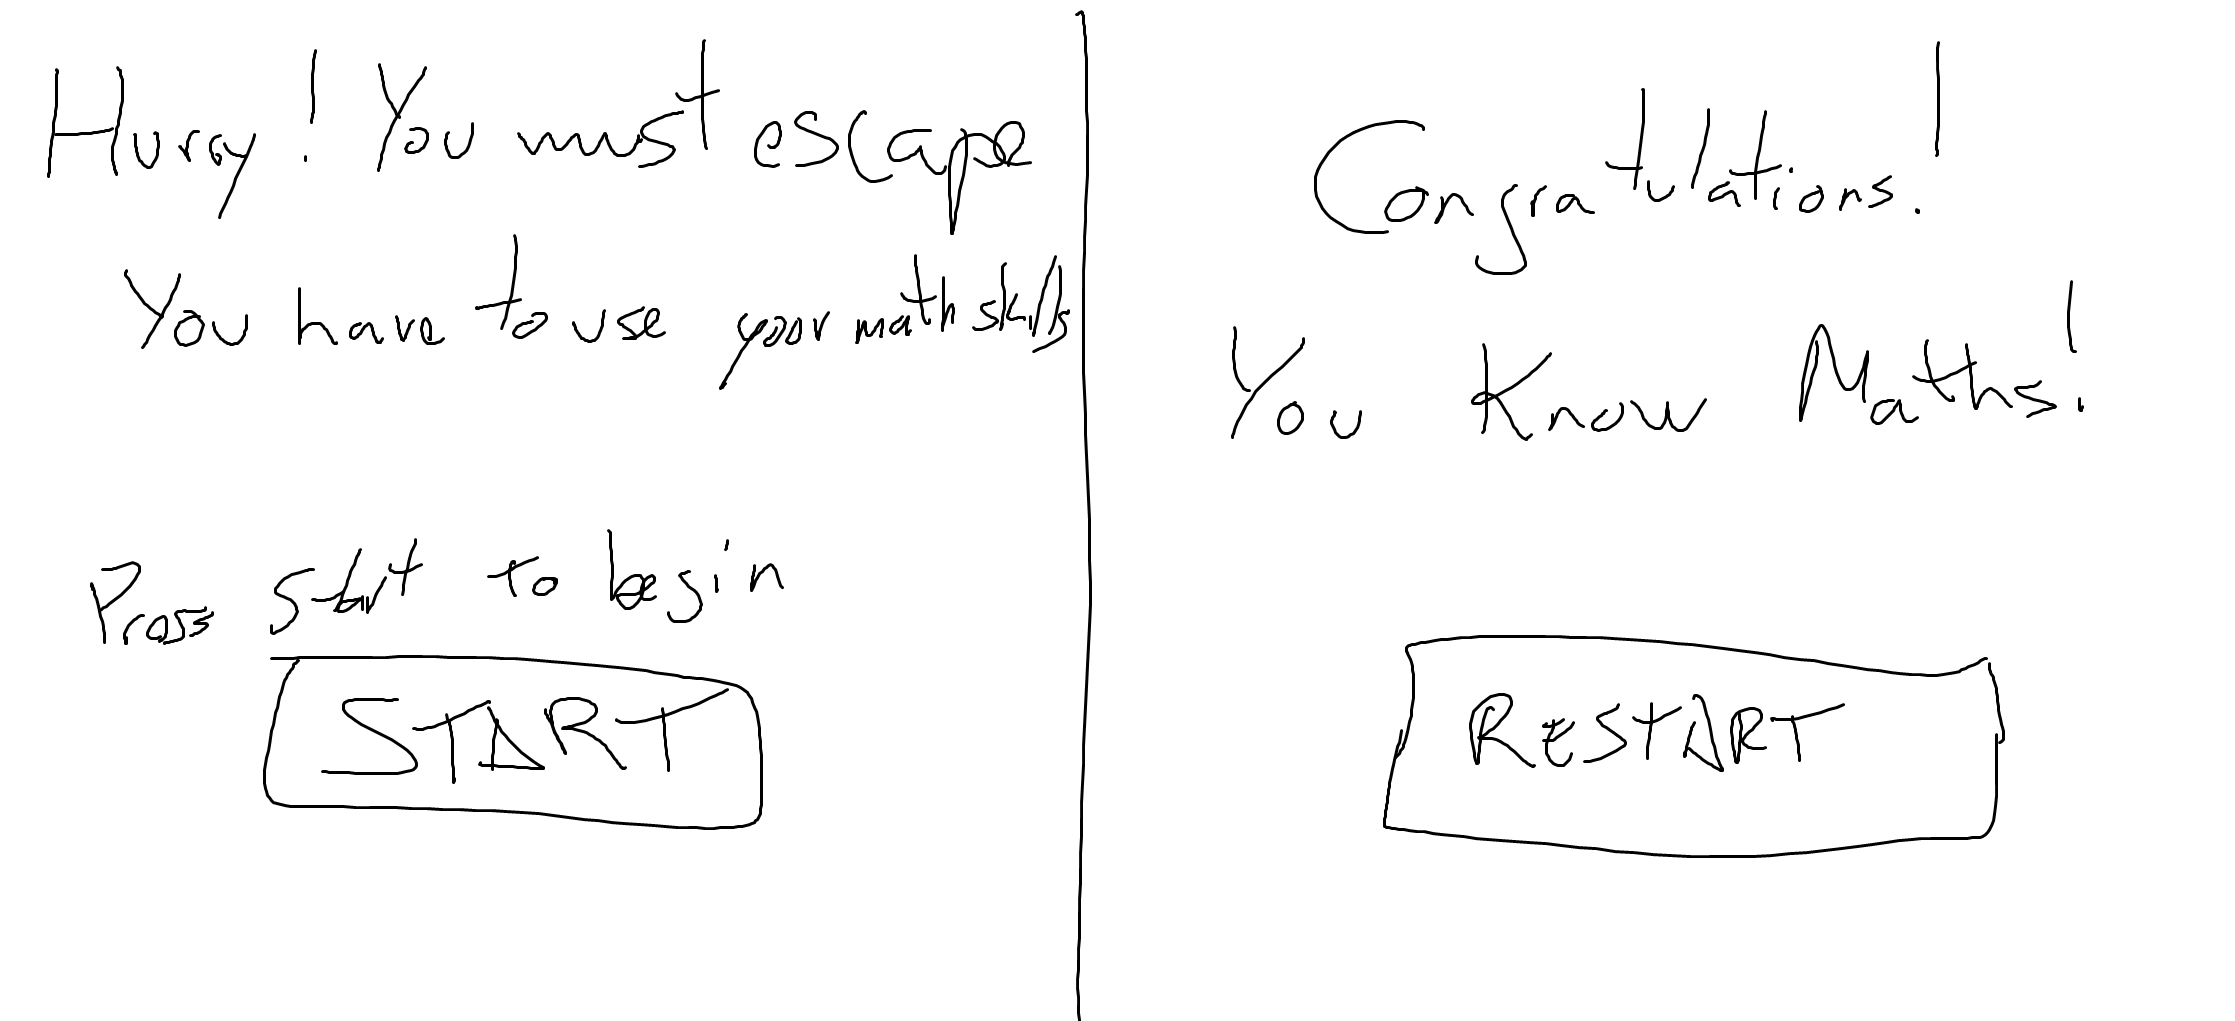 Hurry! You must escape
You have to use your math skills
Press start to begin
START
Congratulations!
You Know Maths!
RESTART